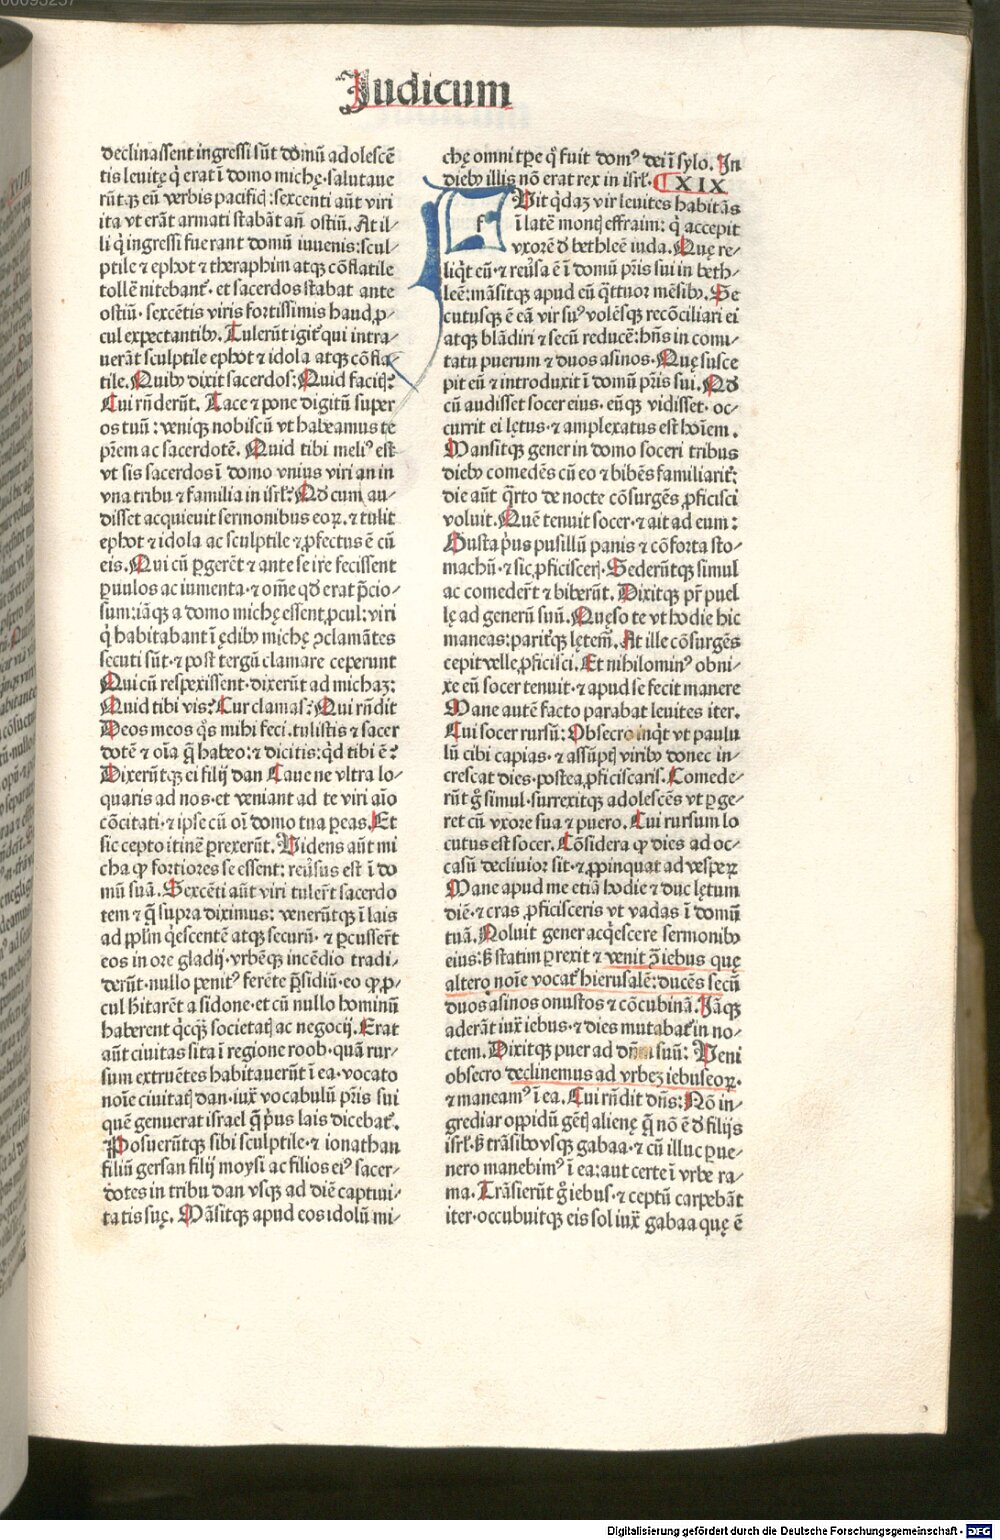 Judicum
declinassent ingressi sūt domū adolescē
tis leuitę q̇ erat ī domo michę·salutaue
rūtqꝫ eū verbis pacificꝭ·sexcenti aūt viri
ita vt erāt armati stabāt an̄ ostiū. At il⸗
li q̇ ingressi fuerant domū iuuenis:scul⸗
ptile ⁊ ephot ⁊ theraphim atqꝫ cōflatile
tollē nitebantᷣ· et sacerdos stabat ante
ostiū· sexcētis viris fortissimis haud ꝓ⸗
cul expectantibꝰ. Tulerūt igitᷣ qui intra⸗
uerāt sculptile ephot ⁊ idola atqꝫ cōfla
tile. Quibꝰ dixit sacerdos: Quid facitꝭ?
Cui rn̄derūt. Tace ⁊ pone digitū super
os tuū: veniqꝫ nobiscū vt habeamus te
p̄rem ac sacerdotē. Quid tibi meliꝰ est
vt sis sacerdos ī domo vnius viri an in
vna tribu ⁊ familia in isrl̄? Qd̓ cum au⸗
disset acquieuit sermonibus eoꝝ. ⁊ tulit
ephot ⁊ idola ac sculptile ⁊ ꝓfectus ē cū
eis. Qui cū ꝑgerēt ⁊ ante se ire fecissent
ꝑuulos ac iumenta· ⁊ om̄e qd̓ erat p̄cio⸗
sum: iāqꝫ a domo michę essent ꝓcul: viri
q̇ habitabant ī ędibꝰ michę ꝯclamātes
secuti sūt· ⁊ post tergū clamare ceperunt
Qui cū respexissent· dixerūt ad michaꝫ:
Quid tibi vis? Cur clamas? Qui rn̄dit
Deos meos q̇s mihi feci tulistis ⁊ sacer
dotē ⁊ oīa q̄ habeo: ⁊ dicitis: qd̓ tibi ē?
Dixerūtqꝫ ei filij dan Caue ne vltra lo⸗
quaris ad nos· et veniant ad te viri aīo
cōcitati· ⁊ ipse cū oī domo tua ꝑeas. Et
sic cepto itinē ꝑrexerūt. Videns aūt mi
cha ꝙ fortiores se essent: reūsus est ī do
mū suā. Sexcēti aūt viri tuler̄t sacerdo
tem ⁊ q̄ supra diximus: venerūtqꝫ ī lais
ad pp̄lm q̇escentē atqꝫ securū· ⁊ ꝑcusser̄t
eos in ore gladij· vrbēqꝫ incēdio tradi⸗
derūt· nullo penitꝰ ferēte p̄sidiū· eo ꝙ ꝓ⸗
cul hītarēt a sidone· et cū nullo hominū
haberent q̇cqꝫ̄ societatꝭ ac negocij. Erat
aūt ciuitas sita ī regione roob· quā rur⸗
sum extruētes habitauerūt ī ea· vocato
noīe ciuitatꝭ dan· iux̄ vocabulū p̄ris sui
quē genuerat israel q̄ pͥus lais dicebatᷣ.
Posuerūtqꝫ sibi sculptile· ⁊ ionathan
filiū gersan filij moysi ac filios eiꝰ sacer⸗
dotes in tribu dan vsqꝫ ad diē captiui⸗
tatis suę. Māsitqꝫ apud eos idolū mi⸗
chę omni tp̄e q̇ fuit domꝰ dei ī sylo. In
diebꝰ illis nō erat rex in isrl̄· XIX
f Vit qdaꝫ vir leuites habitās
ī late͛ montꝭ effraim: q̇ accepit
vxorē d̓ bethleē iuda. Quę re⸗
liq̇t eū· ⁊ reūsa ē ī domū p̄ris sui in beth⸗
leē: māsitqꝫ apud eū q̇ttuor mēsibꝰ. Se
cutusqꝫ ē eā vir suꝰ volēsqꝫ recōciliari ei
atqꝫ blādiri ⁊ secū reducē: hn̄s in comi⸗
tatu puerum ⁊ duos asinos. Quę susce
pit eū ⁊ introduxit ī domū p̄ris sui. Qd̓
cū audisset socer eius· eūqꝫ vidisset· oc⸗
currit ei lętus· ⁊ amplexatus est hoīem.
Mansitqꝫ gener in domo soceri tribus
diebꝰ comedēs cū eo ⁊ bibēs familiaritᷣ:
die aūt q̇rto de nocte cōsurgēs ꝓficisci
voluit. Quē tenuit socer· ⁊ ait ad eum:
Gusta pͥus pusillū panis ⁊ cōforta sto⸗
machū· ⁊ sic ꝓficiscerꝭ. Sederūtqꝫ simul
ac comeder̄t ⁊ biberūt. Dixitqꝫ pr̄ puel
lę ad generū suū. Quęso te vt hodie hic
maneas: paritᷣqꝫ lętem̄. At ille cōsurgēs
cepit velle ꝓficisci. Et nihilominꝰ obni⸗
xe eū socer tenuit· ⁊ apud se fecit manere
Mane autē facto parabat leuites iter.
Cui socer rursū: Obsecro inq̇t vt paulu
lū cibi capias· ⁊ assūptꝭ viribꝰ donec in⸗
crescat dies· postea ꝓficiscaris. Comede⸗
rūt gͦ simul· surrexitqꝫ adolescēs vt ꝑge⸗
ret cū vxore sua ⁊ puero. Cui rursum lo
cutus est socer. Cōsidera ꝙ dies ad oc⸗
casū decliuior sit· ⁊ ꝓpinquat ad vesperꝝ
Mane apud me etiā hodie ⁊ duc lętum
diē· ⁊ cras ꝓficisceris vt vadas ī domū
tuā. Noluit gener acq̇escere sermonibꝰ
eius: sꝫ statim ꝑrexit ⁊ venit ꝯ̄ iebus quę
altero noīe vocatᷣ hierusalē: ducēs secū
duos asinos onustos ⁊ cōcubinā. Iāqꝫ
aderāt iux̄ iebus· ⁊ dies mutabatᷣ in no⸗
ctem. Dixitqꝫ puer ad dn̄m suū: Veni
obsecro declinemus ad vrbeꝫ iebuseoꝝ·
⁊ maneamꝰ ī ea. Cui rn̄dit dn̄s: Nō in⸗
grediar oppidū gētꝭ alienę q̄ nō ē d̓ filijs
isrl̄· sꝫ trāsibo vsqꝫ gabaa· ⁊ cū illuc ꝑue⸗
nero manebimꝰ ī ea: aut certe ī vrbe ra⸗
ma. Trāsierūt gͦ iebus· ⁊ ceptū carpebāt
iter· occubuitqꝫ eis sol iux̄ gabaa quę ē
Digitalisierung gefördert durch die Deutsche Forschungsgemeinschaft - DFG